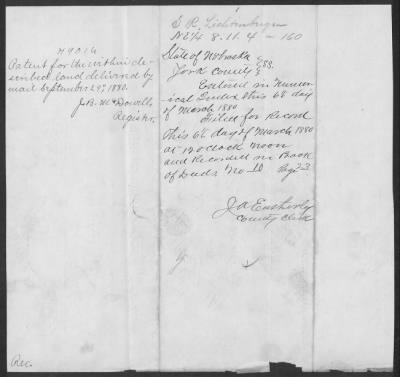 H 9016
Patent for the within de-
scribed land delivered by
mail September 29th, 1880.
J. B. McDowell,
Register.
S R Lichtenberger
NE/4 8. 11. 4 - 160
State of Nebraska } SS.
York County }
Entered in Numer-
ical Index this 6th day
of March 1880
Filed for Record
this 6th day of March 1880
at 12 o'clock noon
and Recorded in Book
of Deeds No 10 Page 23
J A Eatherly
County Clerk
Rec.